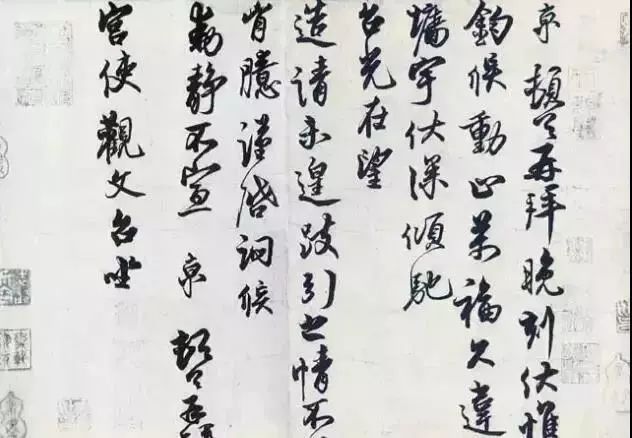 京頓首再拜晚刻伏惟
鈞候動止萬福久違
牗宇伏深傾馳
台光在望
造請未遑跂引之情不
胷臆謹啓詗候
動靜不宣 京 頓首再
宮使觀文台坐